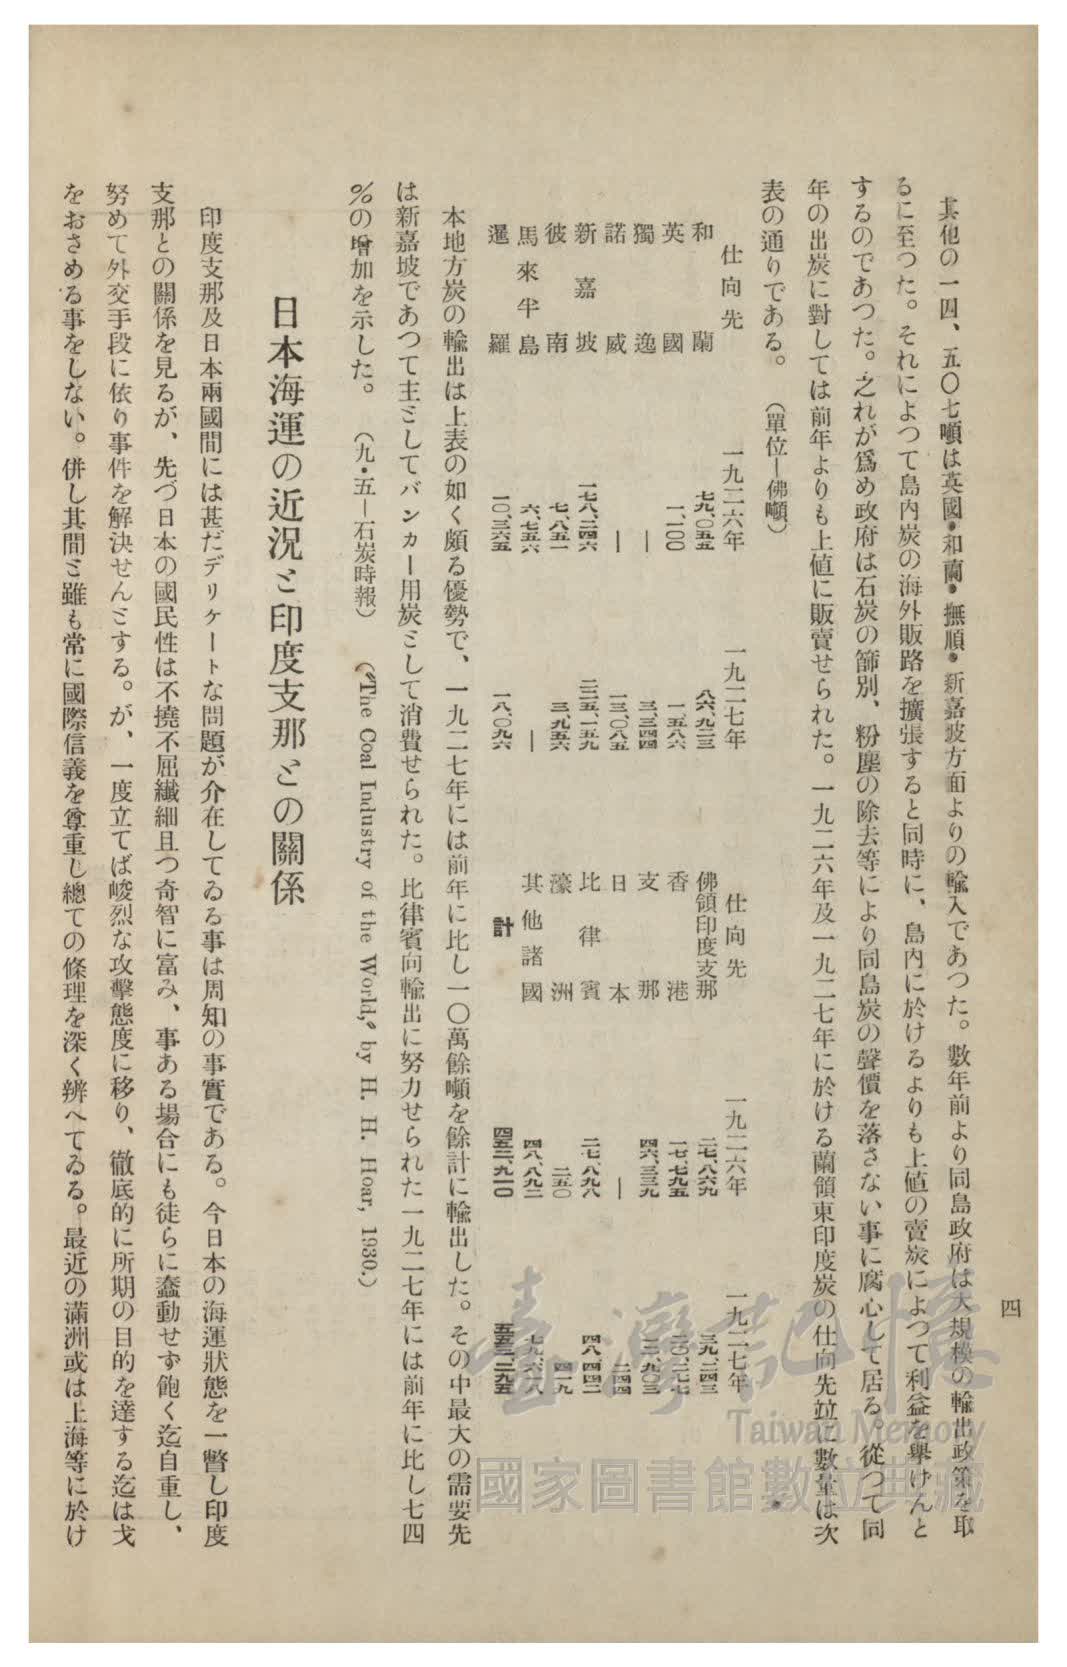 四
其他の一四、五〇七噸は英國・和蘭・撫順・新嘉坡方面よりの輸入であつた。數年前より同島政府は大規模の輸出政策を取
るに至つた。それによつて島內炭の海外販路を擴張すると同時に、島內に於けるよりも上値の賣炭によつて利益を擧げんと
するのであつた。之れが爲め政府は石炭の篩別、粉塵の除去等により同島炭の聲價を落さない事に腐心して居る。從つて同
年の出炭に對しては前年よりも上値に販賣せられた。一九二六年及一九二七年に於ける蘭領東印度炭の仕向先並に數量は次
表の通りである。　（單位—佛噸）
仕向先　一九二六年　一九二七年　仕向先　一九二六年　一九二七年
和蘭　七九、〇五五　八六、九二三　佛領印度支那　二七、八六九　三九、二四三
英國　一、一〇〇　一、五八六　香港　一七、七九五　二〇、二七七
獨逸　—　三、三四四　支那　四六、三三九　三三、九〇三
諾威　—　一三、〇八五　日本　—　二四四
新嘉坡　一七八、二四六　二三五、一五九　比律賓　二七、八九八　四八、四四二
彼南　七、八五一　三、九五六　濠洲　二五〇　四一九
馬來半島　六、七五六　—　其他諸國　四八、八九二　七九、六一八
暹羅　一〇、三六五　一八、〇九六　計　四五二、九二〇　五五三、二九五
本地方炭の輸出は上表の如く頗る優勢で、一九二七年には前年に比し一〇萬餘噸を餘計に輸出した。その中最大の需要先
は新嘉坡であつて主としてバンカー用炭として消費せられた。比律賓向輸出に努力せられた一九二七年には前年に比し七四
％の增加を示した。　（九・五—石炭時報）　（“The Coal Industry of the World,” by H. H. Hoar, 1930.）
日本海運の近況と印度支那との關係
印度支那及日本兩國間には甚だデリケートな問題が介在してゐる事は周知の事實である。今日本の海運狀態を一瞥し印度
支那との關係を見るが、先づ日本の國民性は不撓不屈纖細且つ奇智に富み、事ある場合にも徒らに蠢動せず飽く迄自重し、
努めて外交手段に依り事件を解決せんとする。が、一度立てば峻烈な攻擊態度に移り、徹底的に所期の目的を達する迄は戈
をおさめる事をしない。併し其間と雖も常に國際信義を尊重し總ての條理を深く辨へてゐる。最近の滿洲或は上海等に於け
臺灣記憶
Taiwan Memory
國家圖書館數位典藏